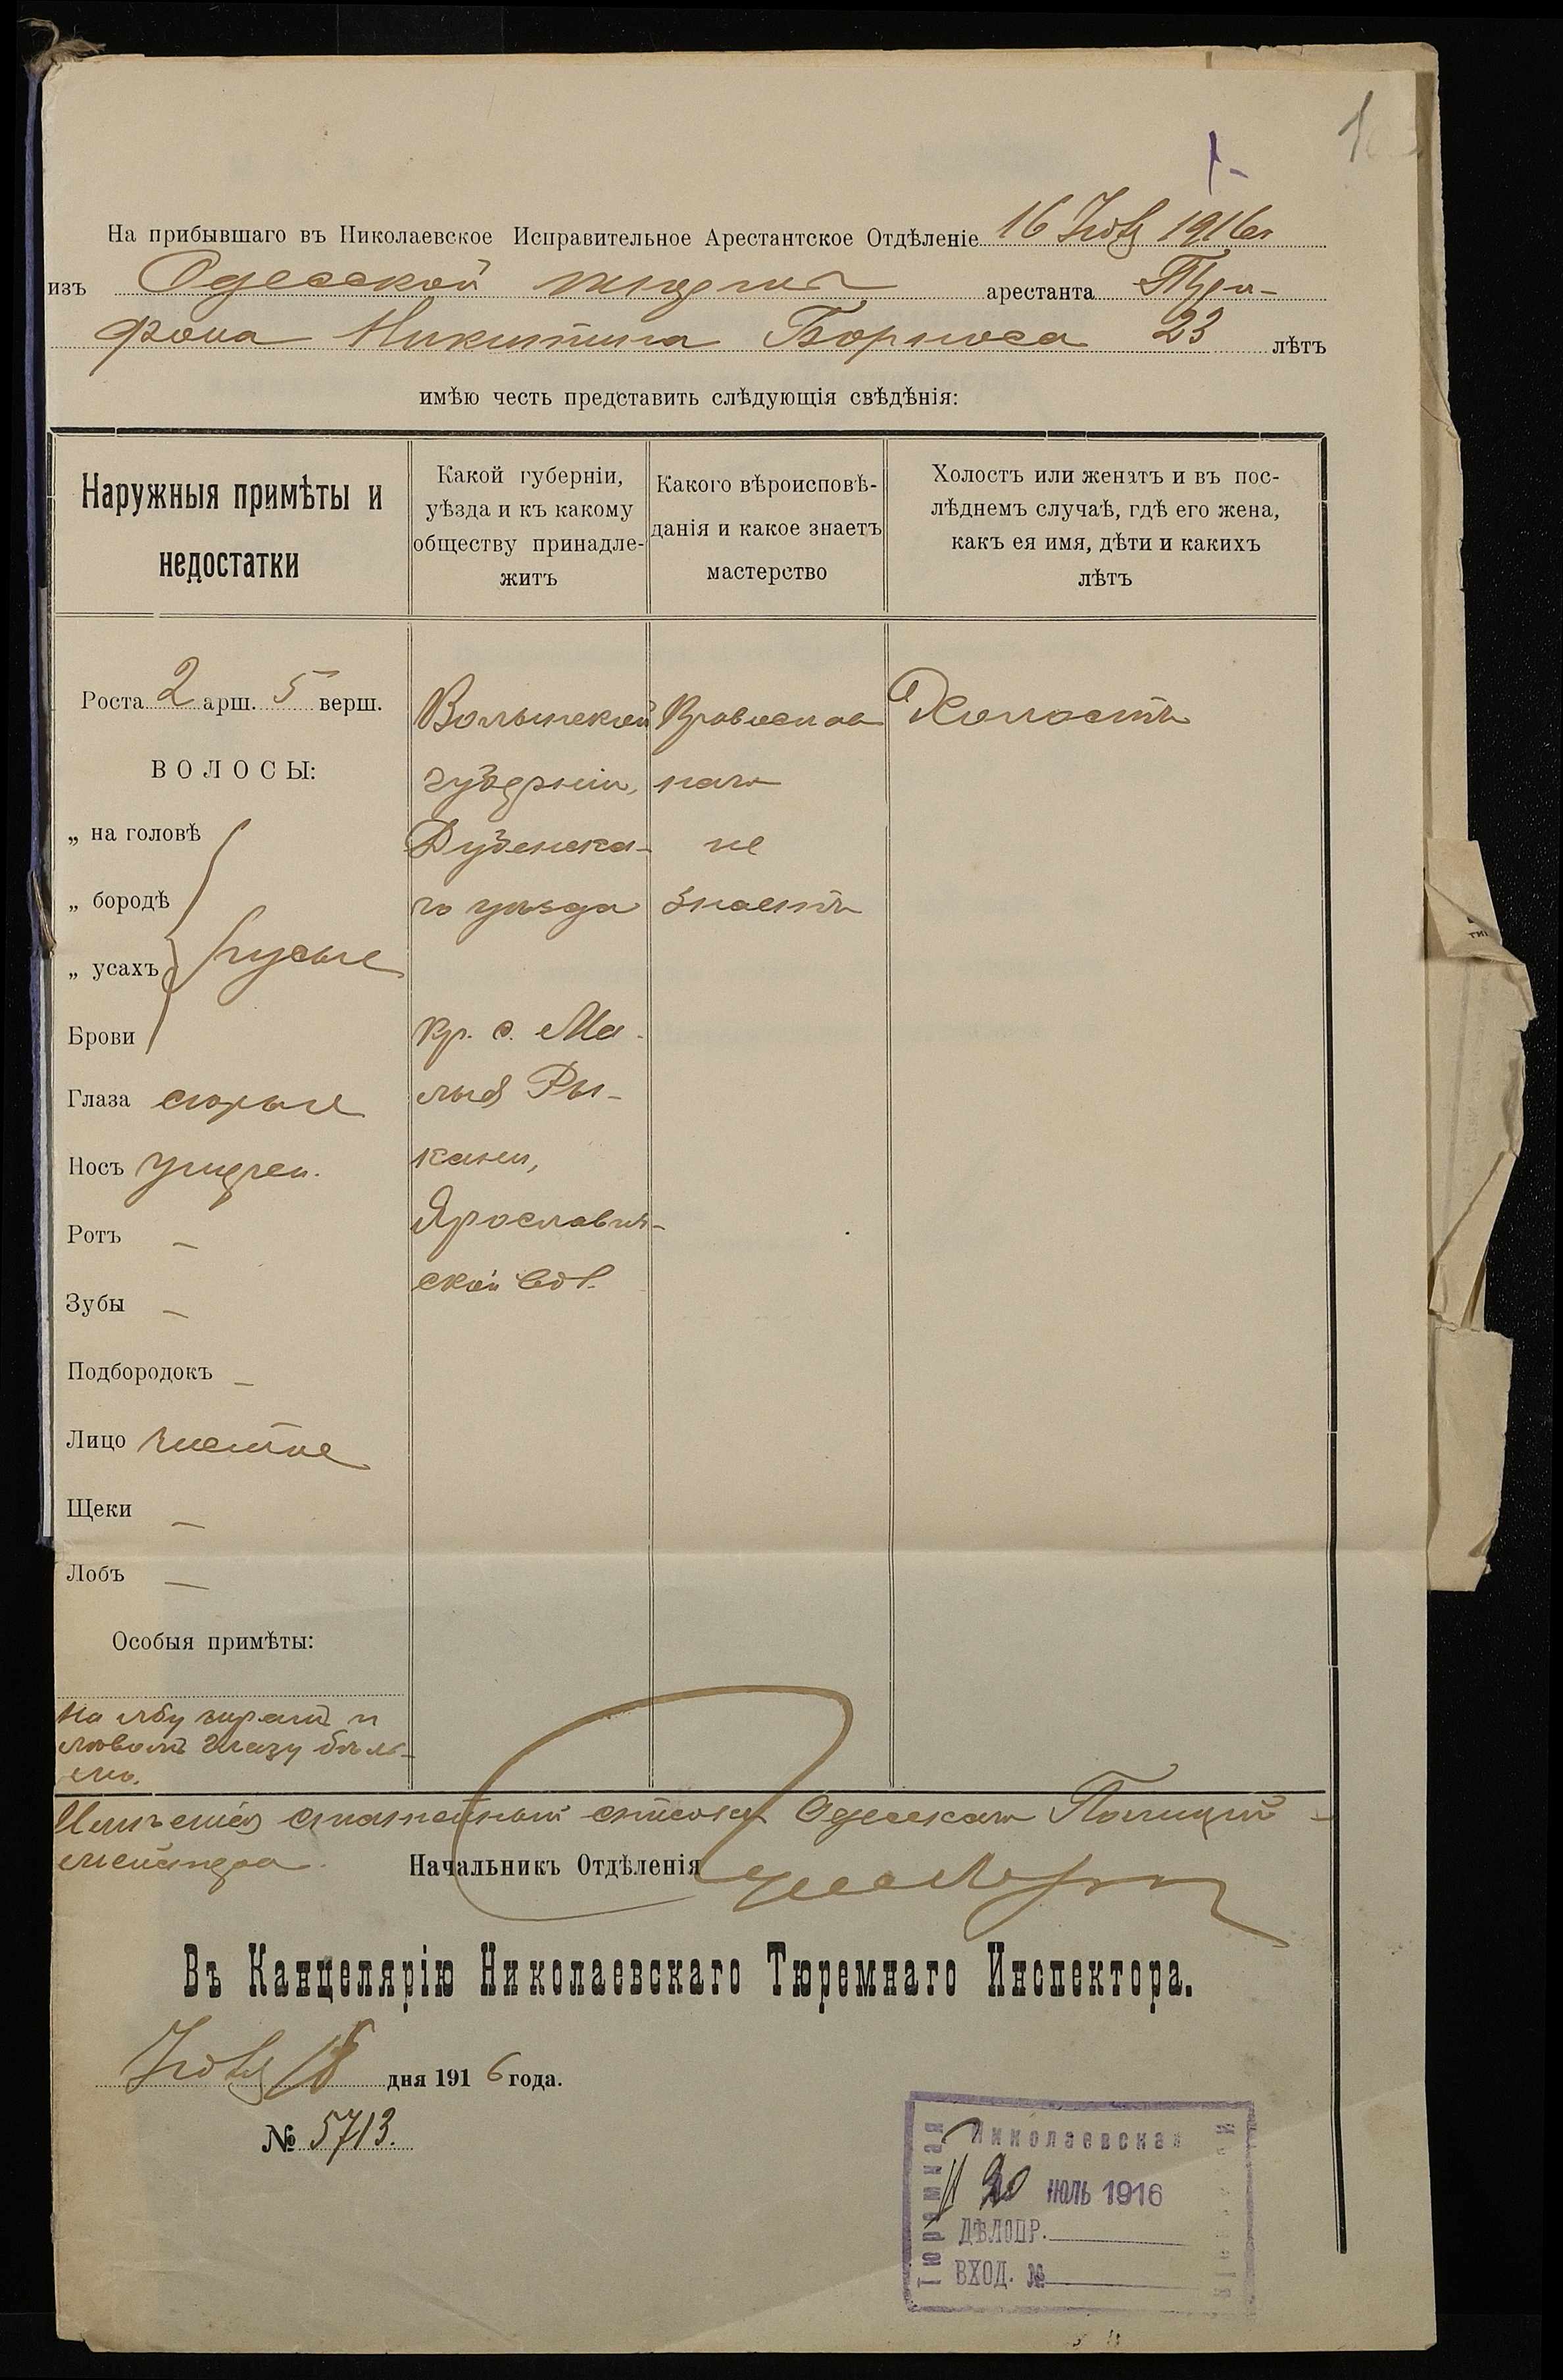 1
1-
На прибывшаго въ Николаевское Исправительное Арестантское Отдѣленіе 16 Іюля 1916 г
изъ Одесской тюрьмы арестанта Три-
фона Никитина Борноса 23 лѣтъ
имѣю честь представить слѣдующія свѣдѣнія:
Наружныя примѣты и
недостатки
Какой губерніи,
уѣзда и къ какому
обществу принадле-
житъ
Какого вѣроисповѣ-
данія и какое знаетъ
мастерство
Холостъ или женатъ и въ пос-
лѣднемъ случаѣ, гдѣ его жена,
какъ ея имя, дѣти и какихъ
лѣтъ
Роста 2 арш. 5 верш.
ВОЛОСЫ:
„ на головѣ
„ бородѣ
„ усахъ русые
Брови
Глаза сѣрые
Носъ умѣрен.
Ротъ –
Зубы –
Подбородокъ –
Лицо чистое
Щеки –
Лобъ –
Особыя примѣты:
На лбу шрамъ и
лѣвомъ глазу бѣль-
мо.
Волынской
губерніи,
Дубенска-
го уѣзда
кр. с. Ма-
лыя Ры-
кани,
Ярославич-
ской вол.
Православ
наго
не
знаетъ
Холостъ
Имѣется статейный списокъ Одесскаго Полицій-
мейстера.
Начальникъ Отдѣленія
Въ Канцелярію Николаевскаго Тюремнаго Инспектора.
Іюля 18 дня 1916 года.
№ 5713.
Николаевская
Тюремная
20 ІЮЛЬ 1916
ДѢЛОПР.
ВХОД. №